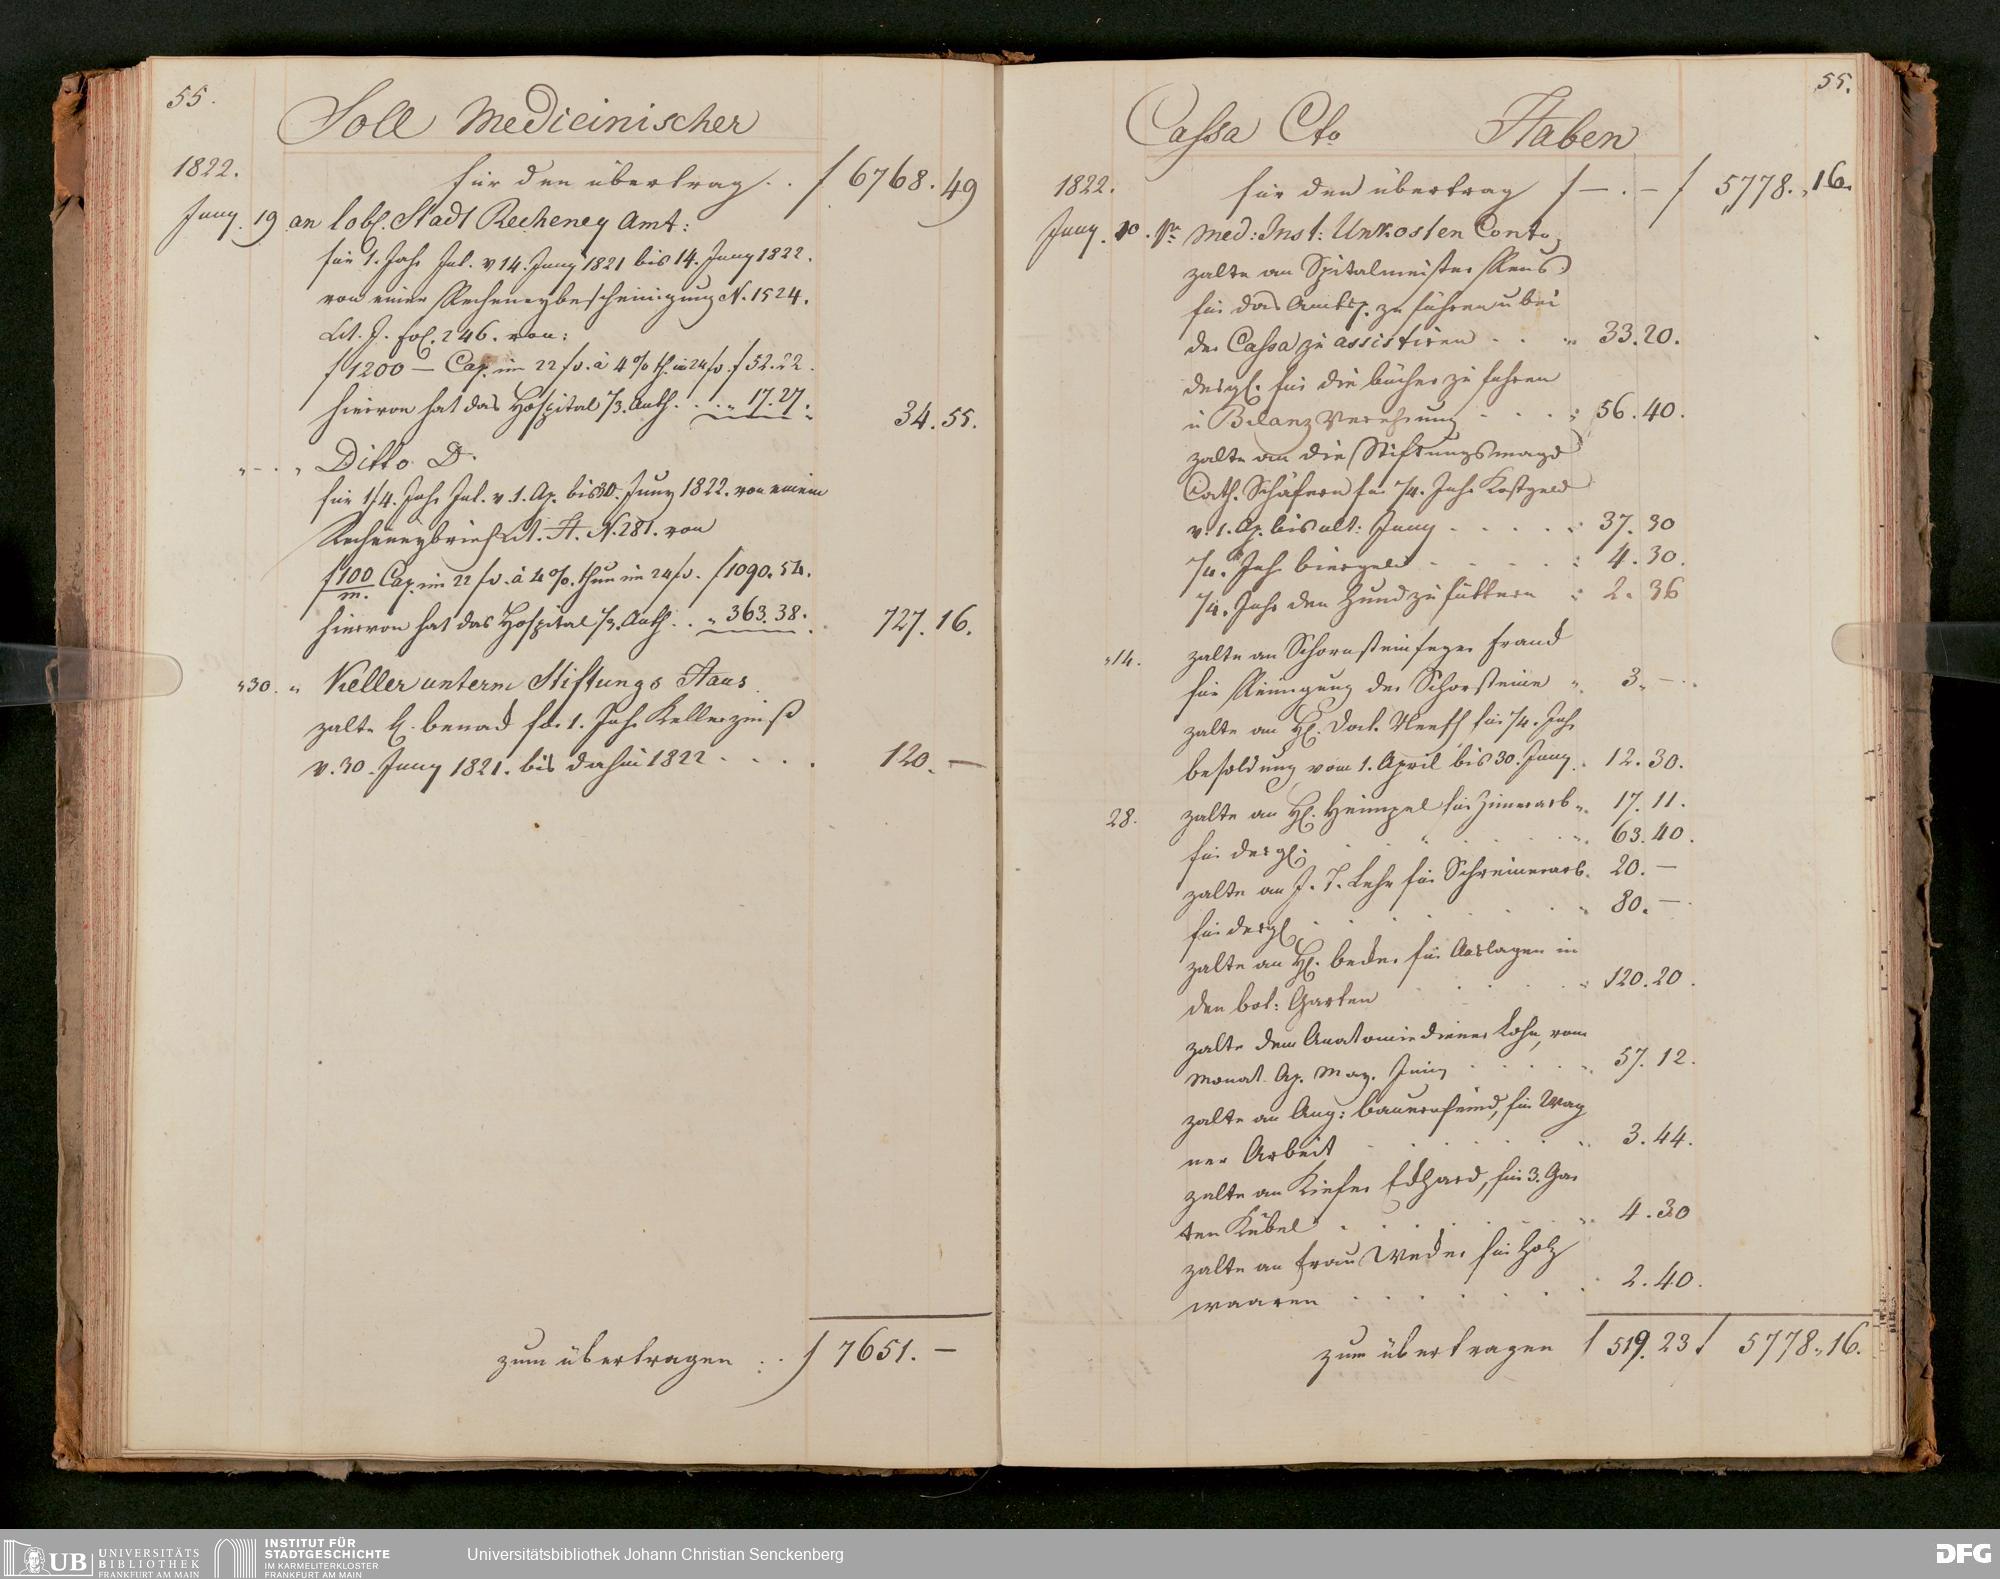 55.
Soll Medicinischer
1822.
für den übertrag . . f 6768. 49
Juny. 19 an lobl. Stadt Recheney Amt:
für 1. Jahr Int. v 14. Juny 1821 bis 14. Juny 1822.
von einer Recheneybescheinigung N. 1524.
Lit. J. fol. 246. von:
f 1200 — Cap. im 22 fs. à 4% th. im 24 fs. f 52.22.
hievon hat das Hospital 1/3. Anth. . . . „ 17. 27. 34. 55.
„ — . „ Ditto D.
für 1/4. Jahr Int. v. 1. Ap. bis 30. Juny 1822. von einem
Recheneybrief Lit. H. N. 281. von
f 100/m. Cap. im 22 fs. à 4%. thun im 24 fs. f 1090. 54.
hievon hat das Hospital 1/3. Anth. . . „ 363. 38. 727. 16.
„ 30. „ Keller unterm Stiftungs Haus
zalte H. benad für 1. Jahr Kellerzinß
v. 30. Juny 1821. bis dahin 1822 . . . . 120. —
zum übertragen . . f 7651. —
55.
Cassa Cto Haben
1822. für den übertrag f — . — f 5778. „ 16.
Juny. 10. pr. Med: Inst: Unkosten Conto,
zalte an Spitalmeister Reus
für das Amtsp. zu führen u bei
der Cassa zu assistiren . . „ 33. 20.
desgl. für die bücher zu führen
u Bilanz Verehrung . . . . „ 56. 40.
zalte an die Stiftungsmagd
Cath. Schäfern für 1/4. Jahr Kostgeld
v. 1. Ap. bis ult: Juny . . . . . „ 37. 30
1/4. Jahr biergeld . . . . . „ 4. 30.
1/4. Jahr den Hund zu füttern „ 2. 36
„ 14. zalte an Schornsteinfeger Frand
für Reinigung der Schorsteine „ 3. —
zalte an H. Doct. Neeff für 1/4. Jahr
besoldung vom 1. April bis 30. Juny . 12. 30.
28. zalte an H. Heimpel für Zimerarb „ 17. 11.
für desgl: . . . . . . „ 63. 40.
zalte an J. T. Lehr für Schreinerarb. 20. —
für desgl. . . . . . . „ 80. —
zalte an H. beder für Auslagen in
den bot: Garten . . . . „ 120. 20.
zalte dem Anatomiediener Lohn, vom
Monat Ap. May. Juny . . . . . „ 57. 12.
zalte an Aug: bauernfeind, für Wag
ner Arbeit . . . . . „ 3. 44.
zalte an Kiefer Edhard, für 3. Gar
ten Kübel . . . . . . „ 4. 30
zalte an Frau Weder für Holz
waaren . . . . . . . 2. 40.
zum übertragen f 519. 23 f 5778. „ 16.
UB UNIVERSITÄTS
BIBLIOTHEK
FRANKFURT AM MAIN
INSTITUT FÜR
STADTGESCHICHTE
IM KARMELITERKLOSTER
FRANKFURT AM MAIN
Universitätsbibliothek Johann Christian Senckenberg
DFG